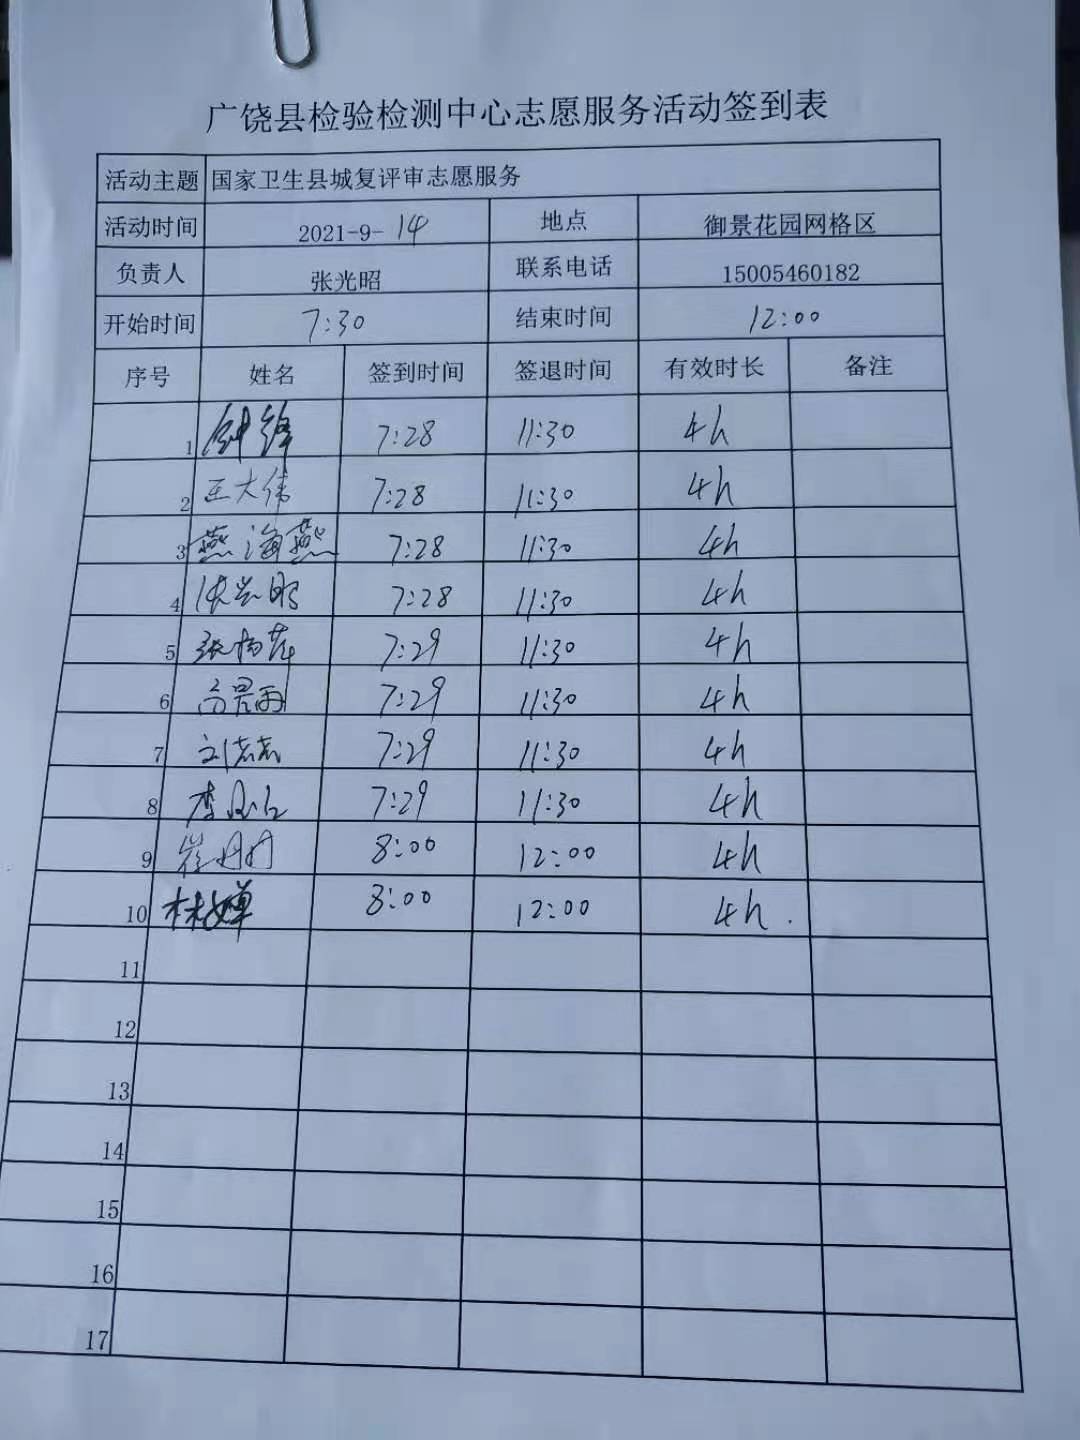 广饶县检验检测中心志愿服务活动签到表
活动主题 国家卫生县城复评审志愿服务
活动时间 2021-9-14 地点 御景花园网格区
负责人 张光昭 联系电话 15005460182
开始时间 7:30 结束时间 12:00
序号 姓名 签到时间 签退时间 有效时长 备注
1 钟锋 7:28 11:30 4h
2 王大伟 7:28 11:30 4h
3 燕海燕 7:28 11:30 4h
4 7:28 11:30 4h
5 7:29 11:30 4h
6 7:29 11:30 4h
7 7:29 11:30 4h
8 7:29 11:30 4h
9 崔丹丹 8:00 12:00 4h
10 林婵 8:00 12:00 4h.
11
12
13
14
15
16
17